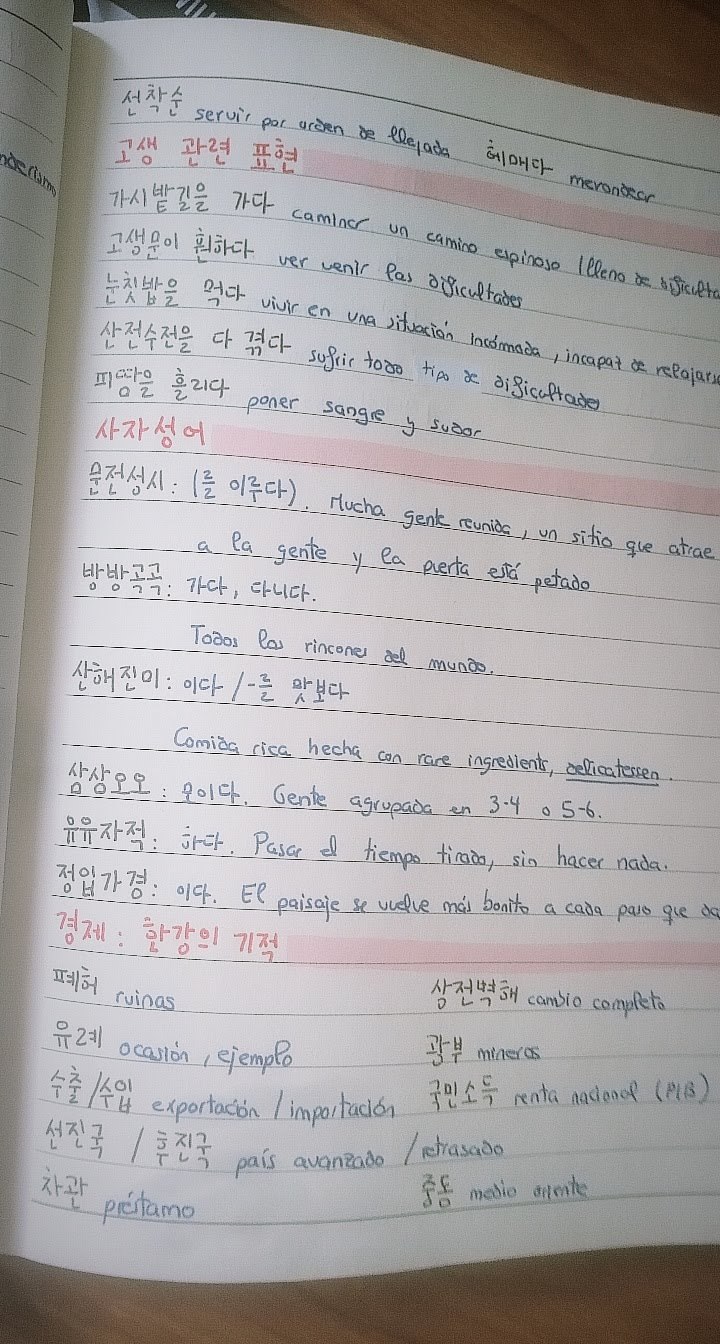 선착순 servir por orden de llegada 헤매다 merondear
고생 관련 표현
가시밭길을 가다 caminar un camino espinoso / lleno de dificulta
고생문이 훤하다 ver venir las dificultades
눈칫밥을 먹다 vivir en una situación incómada, incapat de relajars
산전수전을 다 겪다 sufrir todo tipo de dificultades
피땀을 흘리다 poner sangre y sudor
사자성어
문전성시: (를 이루다). Mucha gente reunida, un sitio que atrae
a la gente y la puerta está petado
방방곡곡: 가다, 다니다.
Todos los rincones del mundo.
산해진미: 이다 / -를 맛보다
Comida rica hecha con rare ingredients, delicatessen.
삼삼오오: 모이다. Gente agrupada en 3-4 o 5-6.
유유자적: 하다. Pasar el tiempo tirado, sin hacer nada.
점입가경: 이다. El paisaje se vuelve más bonito a cada paso que da
경제: 한강의 기적
폐허 ruinas 상전벽해 cambio completo
유례 ocasión, ejemplo 광부 mineros
수출/수입 exportación / importación 국민소득 renta nacional (PIB)
선진국 / 후진국 país avanzado / retrasado
차관 préstamo 중동 medio oriente